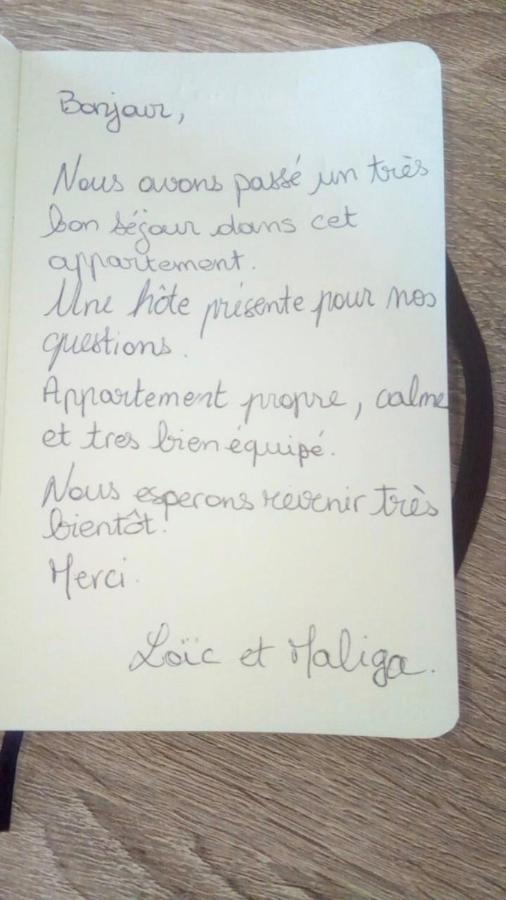 Bonjour,
Nous avons passé un très
bon séjour dans cet
appartement.
Une hôte présente pour nos
questions.
Appartement propre, calme
et tres bien équipé.
Nous esperons revenir très
bientôt.
Merci.
Loïc et Maliga.